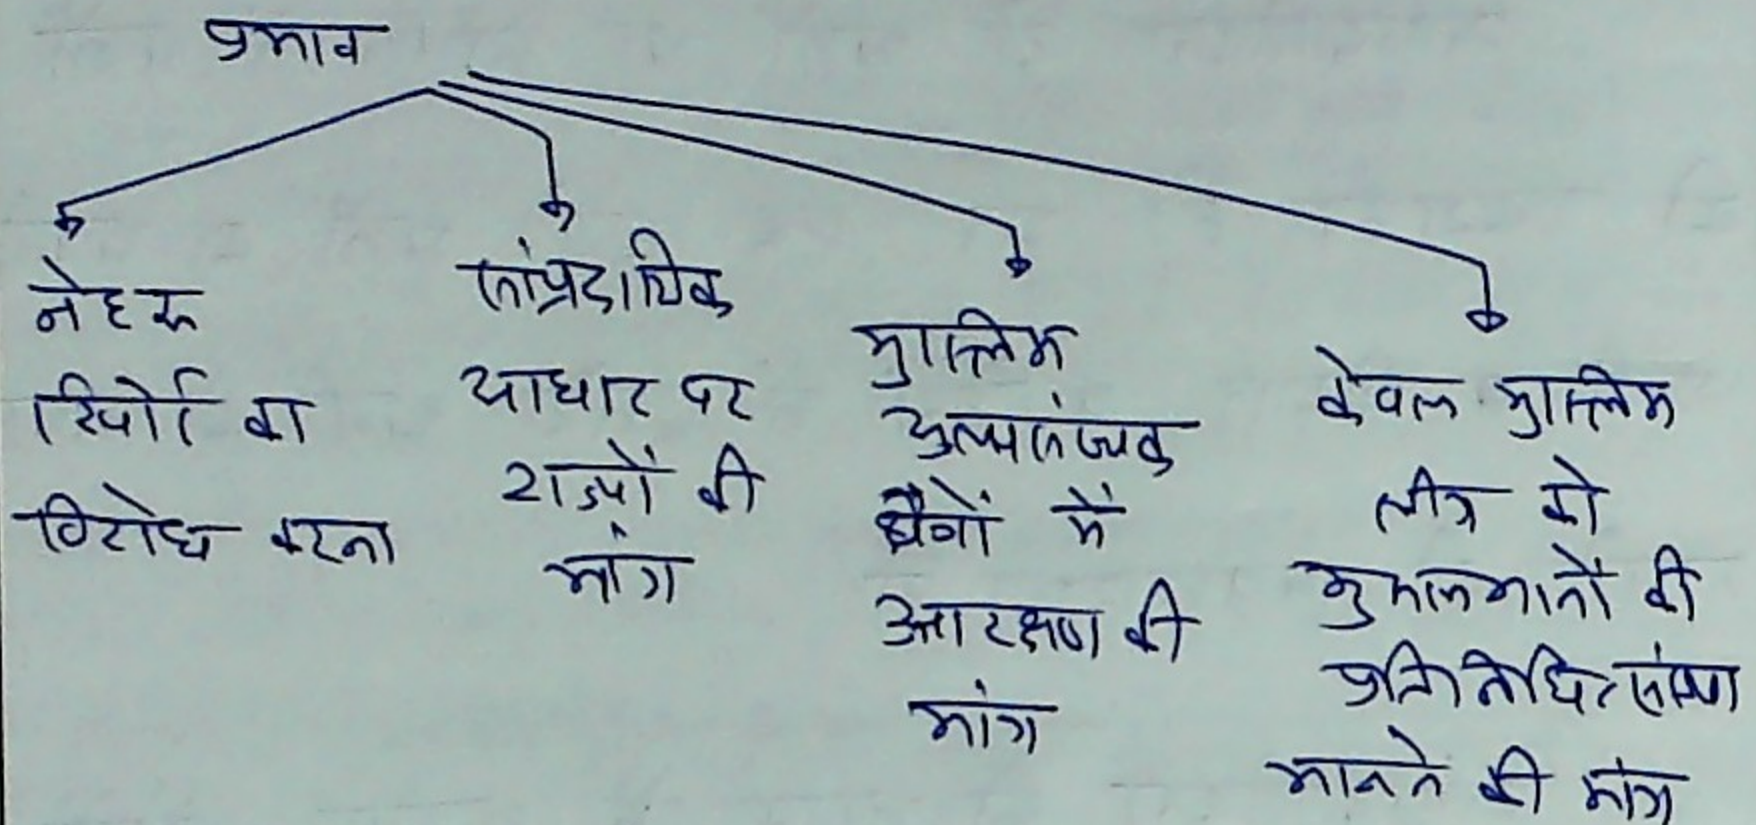 प्रभाव
नेहरू
रिपोर्ट का
विरोध करना
सांप्रदायिक
आधार पर
राज्यों की
मांग
मुस्लिम
अल्पसंख्यक
क्षेत्रों में
आरक्षण की
मांग
केवल मुस्लिम
लीग को
मुसलमानों की
प्रतिनिधि संस्था
मानने की मांग